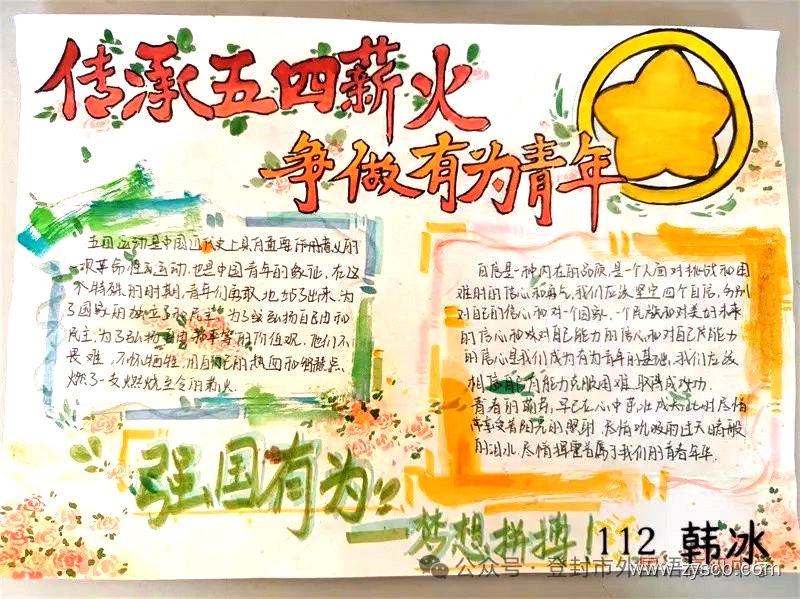 传承五四薪火
争做有为青年
五四运动是中国近代史上具有重要作用意义的
革命性运动,也是中国青年的象征,在这
个特殊的时期,青年们勇敢地站了出来,为了
国家的独立和民主,为了弘扬自由和
民主,为了弘扬和平等的价值观,他们不
畏难,不怕牺牲,用自己的热血和
燃了一支燃烧至今的薪火
自信是一种内在的品质,是一个人面对挑战和困
难时的信心和勇气,我们应该坚定四个自信,分别
对自己的信心和对一个国家、一个民族和对美好未来
的信心和对自己能力的信心,和对自己能力
的信心是我们成为有为青年的基础,我们应该
相信自己有能力克服困难,取得成功.
青春的萌芽,早已在心中茁壮成长,此刻尽情
享受着阳光的照射,尽情吮吸
的泪水,尽情挥霍着属于我们的青春年华.
强国有为
梦想拼搏!
112 韩冰
公众号 登封市外国语
www.zyscb.com